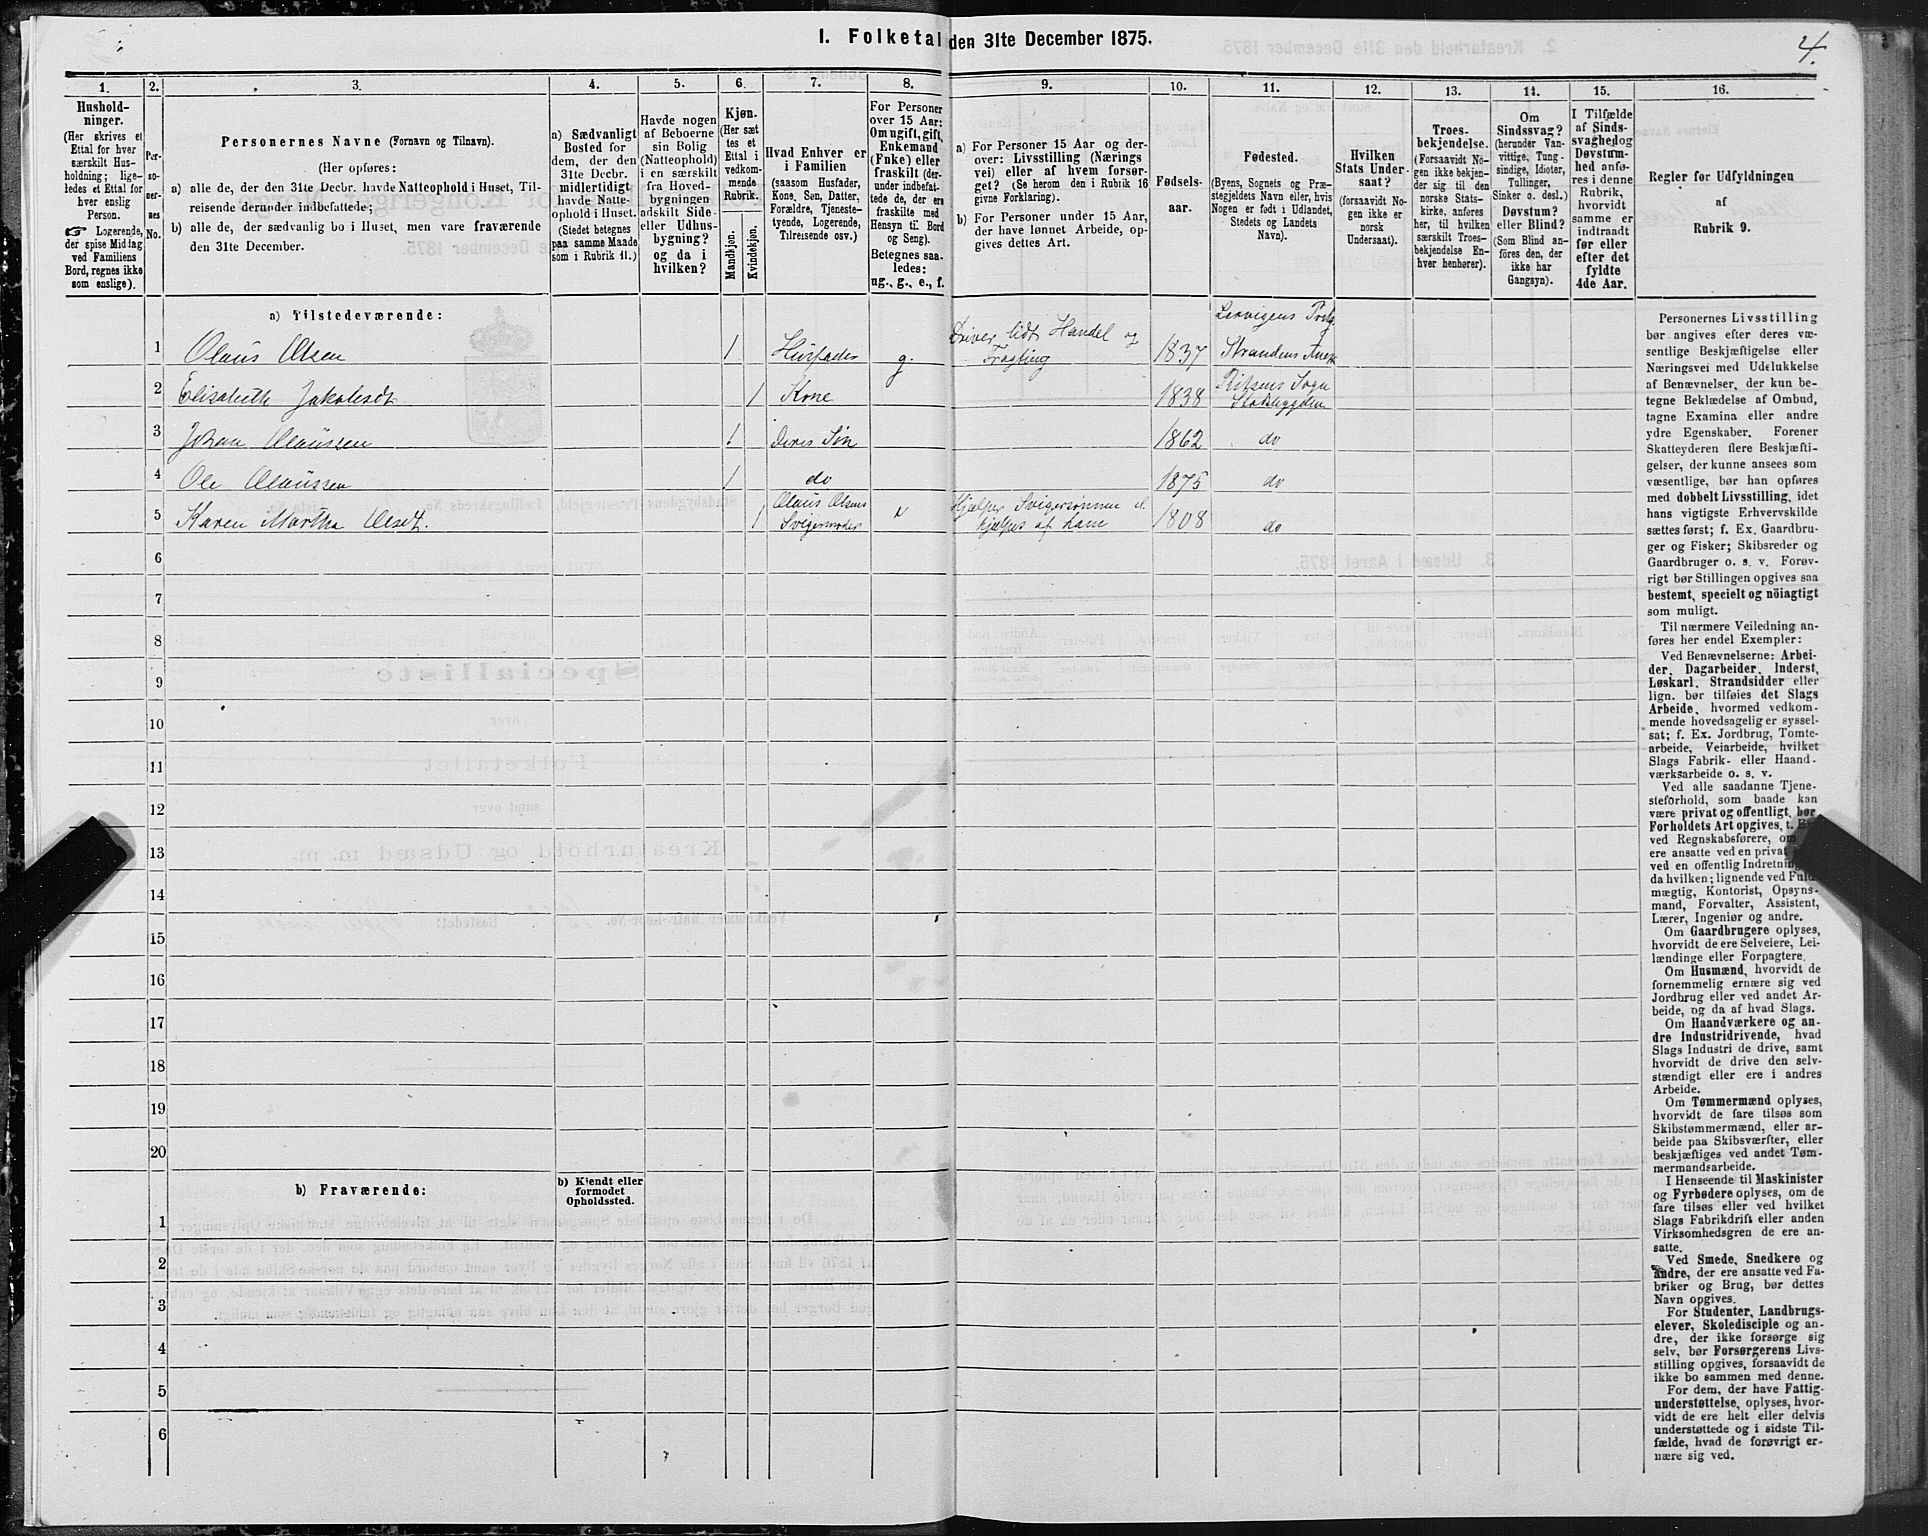 I. Folketal den 31te December 1875.
4.
1.
Hushold-
ninger.
(Her skrives et
Ettal for hver
særskilt Hus-
holdning; lige-
ledes et Ettal for
hver enslig
Person.
☞ Logerende,
der spise Middag
ved Familiens
Bord, regnes ikke
som enslige).
2.
Per-
so-
ner-
nes
No.
3.
Personernes Navne (Fornavn og Tilnavn).
(Her opføres:
a) alle de, der den 31te Decbr. havde Natteophold i Huset, Til-
reisende derunder indbefattede;
b) alle de, der sædvanlig bo i Huset, men vare fraværende
den 31te December.
4.
a) Sædvanligt
Bosted for
dem, der den
31te Decbr.
midlertidigt
havde Natte-
ophold i Huset.
(Stedet betegnes
paa samme Maade
som i Rubrik 11.)
5.
Havde nogen
af Beboerne
sin Bolig
(Natteophold)
i en særskilt
fra Hoved-
bygningen
adskilt Side-
eller Udhus-
bygning?
og da i
hvilken?
6.
Kjøn.
(Her sæt
tes et
Ettal i
vedkom-
mende
Rubrik.
Mandkjøn.
Kvindekjøn.
7.
Hvad Enhver er
i Familien
(saasom Husfader,
Kone, Søn, Datter,
Forældre, Tjeneste-
tyende, Logerende,
Tilreisende osv.)
8.
For Personer
over 15 Aar:
Om ugift, gift,
Enkemand
(Enke) eller
fraskilt (der-
under indbefat-
tede de, der ere
fraskilte med
Hensyn til Bord
og Seng).
Betegnes saa-
ledes:
ug., g., e., f.
9.
a) For Personer 15 Aar og der-
over: Livsstilling (Nærings
vei) eller af hvem forsør-
get? (Se herom den i Rubrik 16
givne Forklaring).
b) For Personer under 15 Aar,
der have lønnet Arbeide, op-
gives dettes Art.
10.
Fødsels-
aar.
11.
Fødested.
(Byens, Sognets og Præ-
stegjeldets Navn eller, hvis
Nogen er født i Udlandet,
Stedets og Landets
Navn).
12.
Hvilken
Stats Under-
saat?
(forsaavidt No-
gen ikke er
norsk
Undersaat).
13.
Troes-
bekjendelse.
(Forsaavidt No-
gen ikke bekjen-
der sig til den
norske Stats-
kirke, anføres
her, til hvilken
særskilt Troes-
bekjendelse En-
hver henhører).
14.
Om
Sindssvag?
(herunder Van-
vittige, Tung-
sindige, Idioter,
Tullinger,
Sinker o. desl.)
Døvstum?
eller Blind?
(Som Blind an-
føres den, der
ikke har
Gangsyn).
15.
I Tilfælde
af Sinds-
svaghed og
Døvstum-
hed anfø-
res i denne
Rubrik,
hvorvidt
samme er
indtraadt
før eller
efter det
fyldte
4de Aar.
16.
Regler for Udfyldningen
af
Rubrik 9.
a) Tilstedeværende:
1 Olaus Olsen 1 Husfader g. Driver lidt Handel og
Fragting 1837 Strandens Anex
2 Elisabeth Jakobsdt 1 Kone 1838 Ritsens Sogn
Stadsbygden
3 Johan Olaussen 1 Deres Søn 1862 do
4 Ole Olaussen 1 do 1875 do
5 Karen Martha Olsdt. 1 Olaus Olsens
Svigermoder Hjælper Svigersønnen
hjelpes af ham 1808 do
6
7
8
9
10
11
12
13
14
15
16
17
18
19
20
b) Fraværende:
b) Kjendt eller
formodet
Opholdssted.
1
2
3
4
5
6
Personernes Livsstilling
bør angives efter deres væ-
sentlige Beskjæftigelse eller
Næringsvei med Udelukkelse
af Benævnelser, der kun be-
tegne Beklædelse af Ombud,
tagne Examina eller andre
ydre Egenskaber. Forener
Skatteyderen flere Beskjæfti-
gelser, der kunne ansees som
væsentlige, bør han opføres
med dobbelt Livsstilling, idet
hans vigtigste Erhvervskilde
sættes først; f. Ex. Gaardbru-
ger og Fisker; Skibsreder og
Gaardbruger o. s. v. Forøv-
rigt bør Stillingen opgives saa
bestemt, specielt og nöiagtigt
som muligt.
Til nærmere Veiledning an-
føres her endel Exempler:
Ved Benævnelserne: Arbei-
der, Dagarbeider, Inderst,
Løskarl, Strandsidder eller
lign. bør tilføies det Slags
Arbeide, hvormed vedkom-
mende hovedsagelig er syssel-
sat; f. Ex. Jordbrug, Tomte-
arbeide, Veiarbeide, hvilket
Slags Fabrik- eller Haand-
værksarbeide o. s. v.
Ved alle saadanne Tjene-
steforhold, som baade kan
være privat og offentligt, bør
Forholdets Art opgives, t.
ved Regnskabsførere, om
ere ansatte ved en privat
ved en offentlig Indretning
da hvilken; lignende ved Fuld-
mægtig, Kontorist, Opsyns-
mand, Forvalter, Assistent,
Lærer, Ingeniør og andre.
Om Gaardbrugere oplyses,
hvorvidt de ere Selveiere, Lei-
lændinge eller Forpagtere.
Om Husmænd, hvorvidt de
fornemmelig ernære sig ved
Jordbrug eller ved andet Ar-
beide, og da af hvad Slags.
Om Haandværkere og an-
dre Industridrivende, hvad
Slags Industri de drive, samt
hvorvidt de drive den selv-
stændigt eller ere i andres
Arbeide.
Om Tømmermænd oplyses,
hvorvidt de fare tilsøs som
Skibstømmermænd, eller ar-
beide paa Skibsværfter, eller
beskjæftiges ved andet Tøm-
mermandsarbeide.
I Henseende til Maskinister
og Fyrbødere oplyses, om de
fare tilsøs eller ved hvilket
Slags Fabrikdrift eller anden
Virksomhedsgren de ere an-
satte.
Ved Smede, Snedkere og
andre, der ere ansatte ved Fa-
briker og Brug, bør dettes
Navn opgives.
For Studenter, Landbrugs-
elever, Skoledisciple og an-
dre, der ikke forsørge sig
selv, bør Forsørgerens Livs-
stilling opgives, forsaavidt de
ikke bo sammen med denne.
For dem, der have Fattig-
understøttelse, oplyses, hvor-
vidt de ere helt eller delvis
understøttede og i sidste Til-
fælde, hvad de forøvrigt er-
nære sig ved.